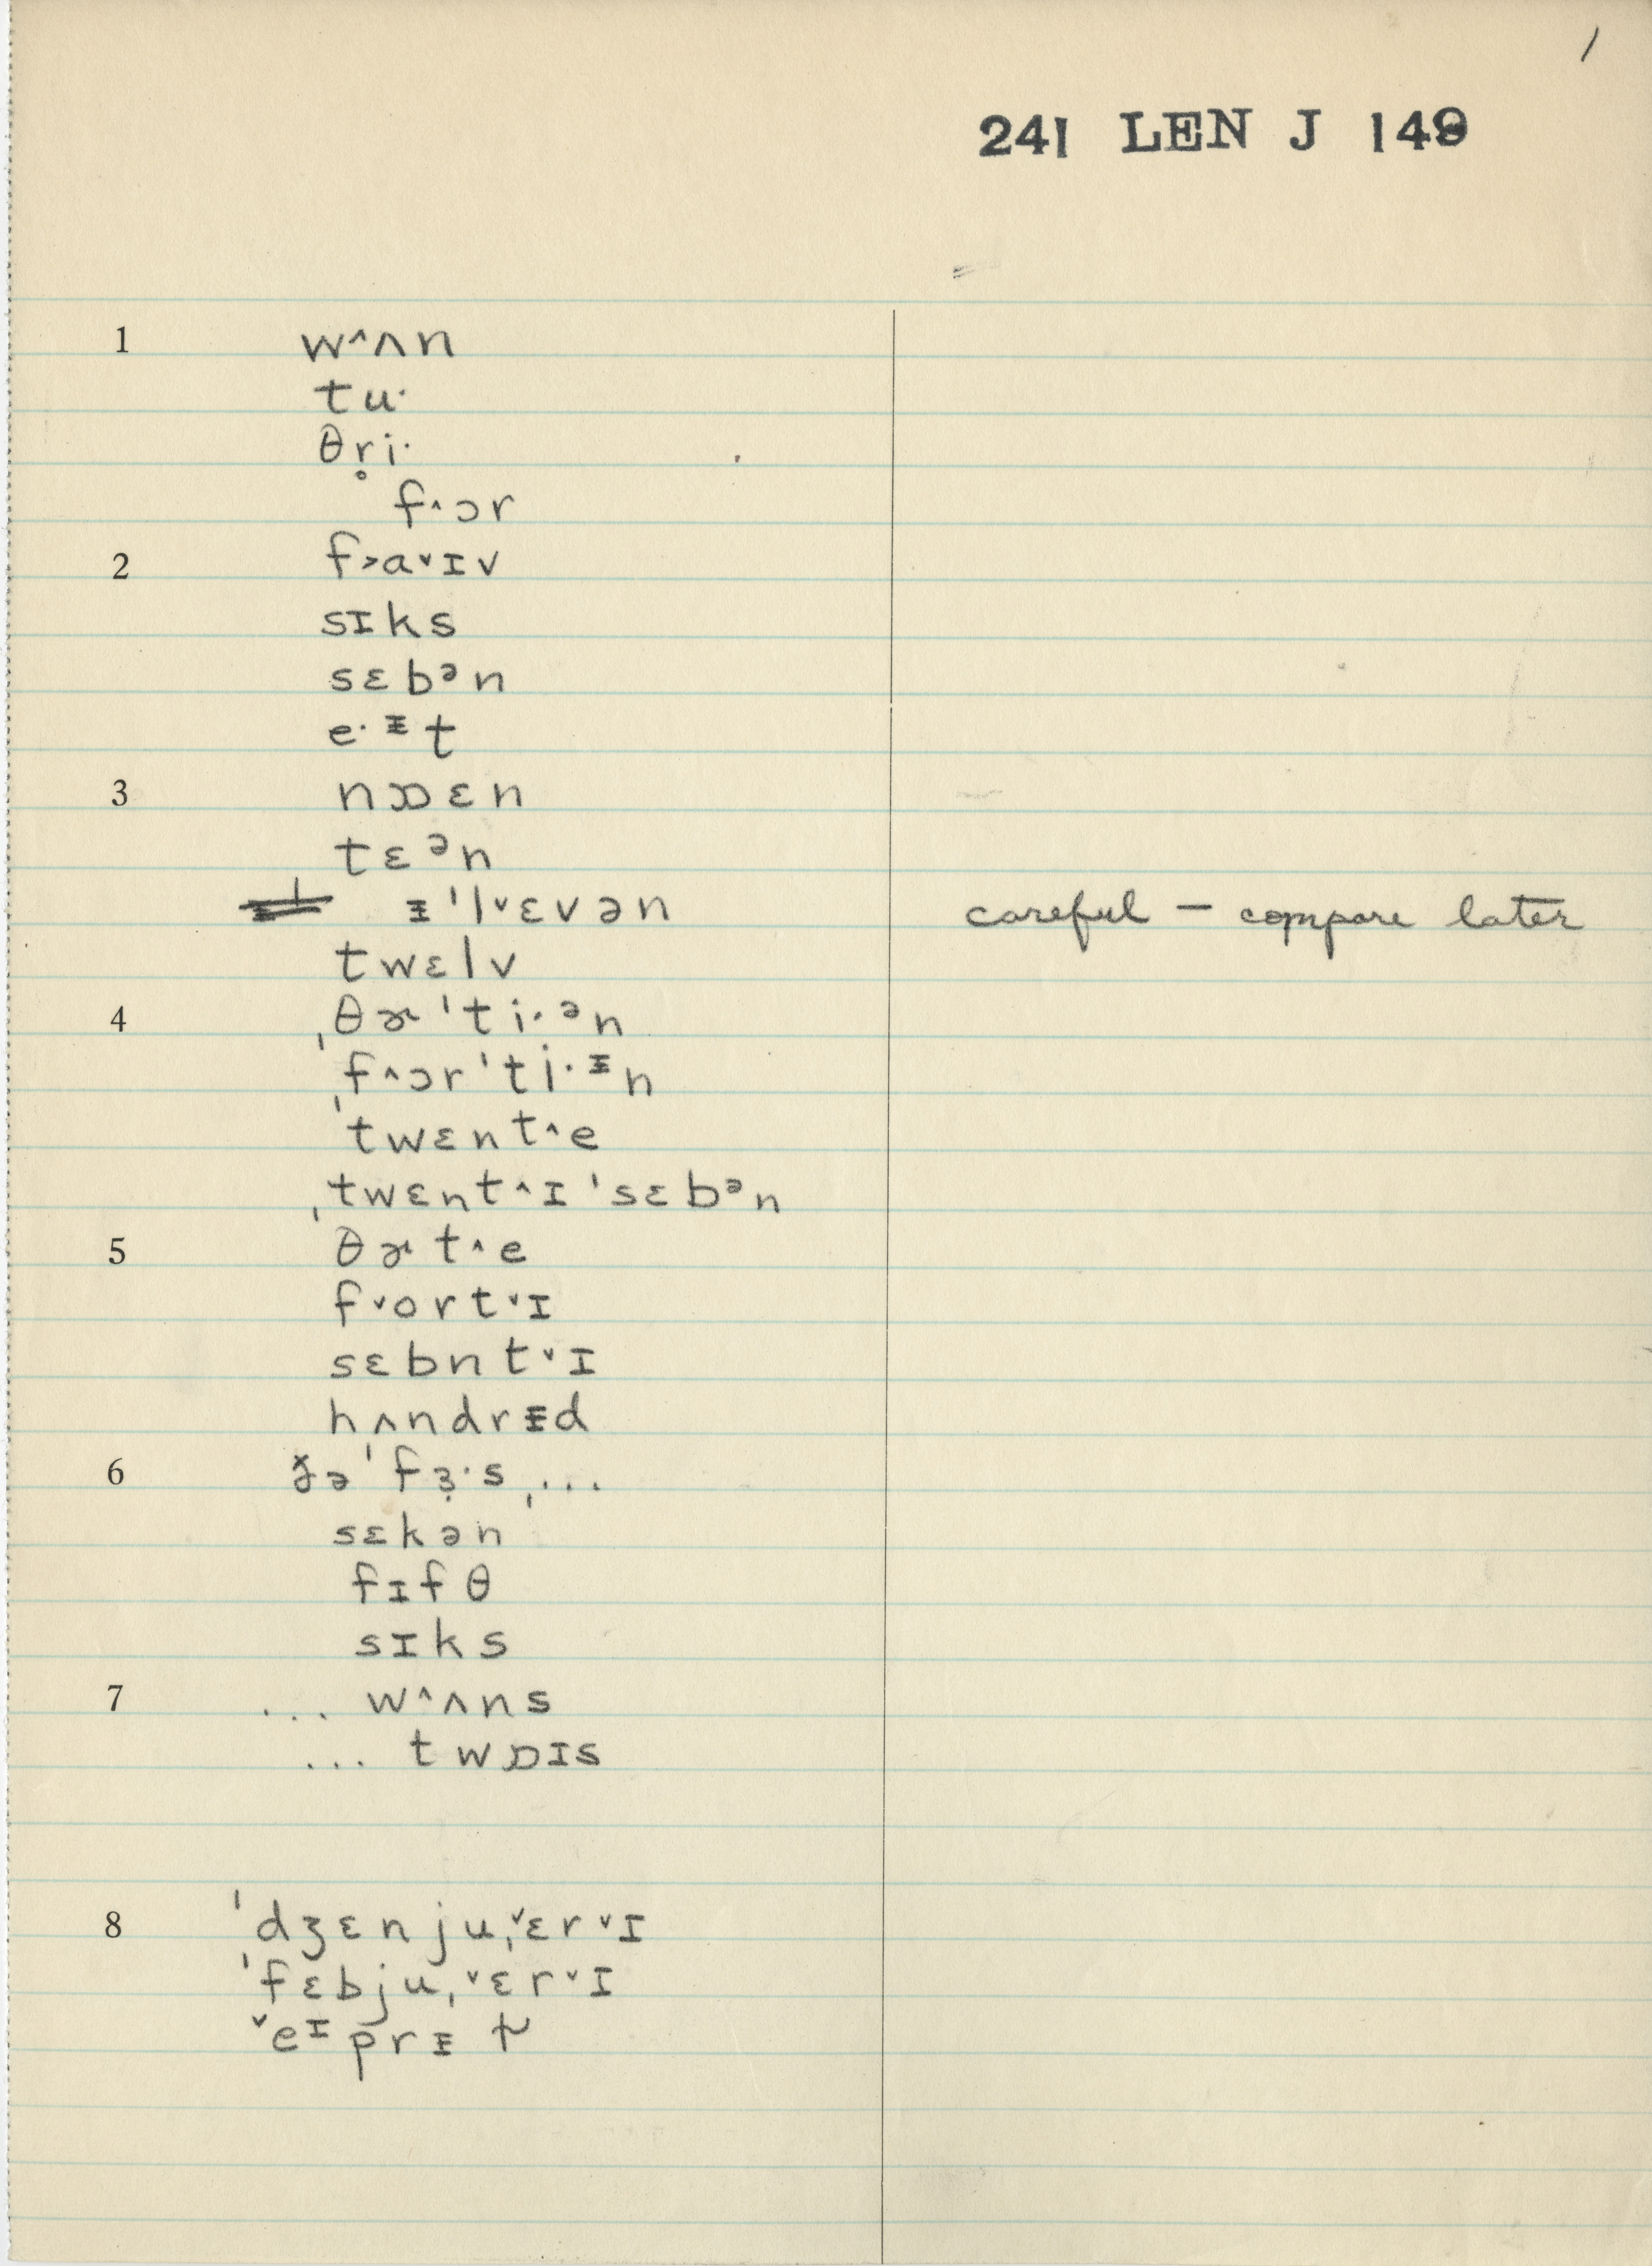 1
241 LEN J 149
1 w^ʌn
tu·
θr̥i·
f^ɔr
2 f>a˅ɪv
sɪks
sɛbᵊn
e·ᵻt
3 nɒɛn
tɛᵊn
ᵻ'l˅ɛvən careful – compare later
twɛlv
4 ˌθɚ'ti·ᵊn
ˌf^ɔr'ti·ᵻn
'twɛnt^e
ˌtwɛnt^ɪ'sɛbᵊn
5 θɚt^e
f˅ort˅ɪ
sɛbnt˅ɪ
hʌndrᵻd
6 ə'fɜ̣·s, ...
sɛkən
fɪfθ
sɪks
7 ... w^ʌns
... twɒɪs
8 'dʒɛnjuˌ˅ɛr˅ɪ
'fɛbjuˌ˅ɛr˅ɪ
˅eᶦprᵻ